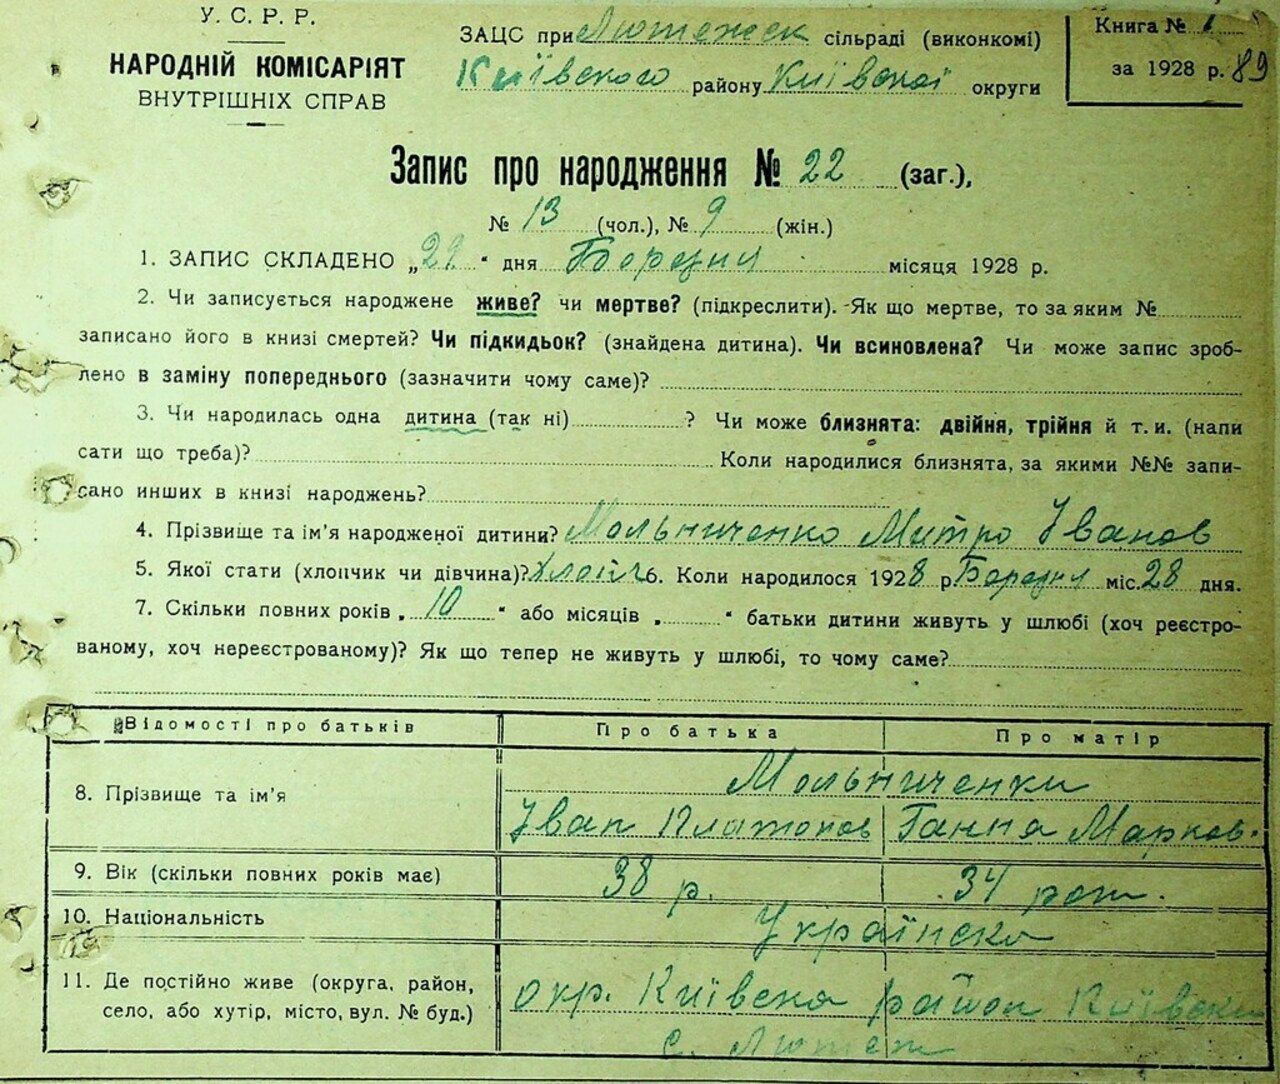 У. С. Р. Р.
НАРОДНІЙ КОМІСАРІЯТ
ВНУТРІШНІХ СПРАВ
ЗАЦС при Лютежск сільраді (виконкомі)
Київского району Київской округи
Книга № 1
за 1928 р. 89
Запис про народження № 22 (заг.),
№ 13 (чол.), № 9 (жін.)
1. ЗАПИС СКЛАДЕНО „29“ дня Березня місяця 1928 р.
2. Чи записується народжене живе? чи мертве? (підкреслити). Як що мертве, то за яким №
записано його в книзі смертей? Чи підкидьок? (знайдена дитина). Чи всиновлена? Чи може запис зроб-
лено в заміну попереднього (зазначити чому саме)?
3. Чи народилась одна дитина (так ні) ? Чи може близнята: двійня, трійня й т. и. (напи
сати що треба)? Коли народилися близнята, за якими №№ запи-
сано инших в книзі народжень?
4. Прізвище та ім'я народженої дитини? Мольниченко Митро Іванов
5. Якої стати (хлопчик чи дівчина)? Хлопч 6. Коли народилося 1928 р Березня міс. 28 дня.
7. Скільки повних років „ 10 “ або місяців „ “ батьки дитини живуть у шлюбі (хоч реєстро-
ваному, хоч нереєстрованому)? Як що тепер не живуть у шлюбі, то чому саме?
Відомості про батьків Про батька Про матір
Мольниченки
8. Прізвище та ім'я
Іван Платонов Ганна Марков.
9. Вік (скільки повних років має) 38 р. 34 рот.
10. Національність Українска
11. Де постійно живе (округа, район,
село, або хутір, місто, вул. № буд.)
окр. Київска район Київски
с. Лютеж